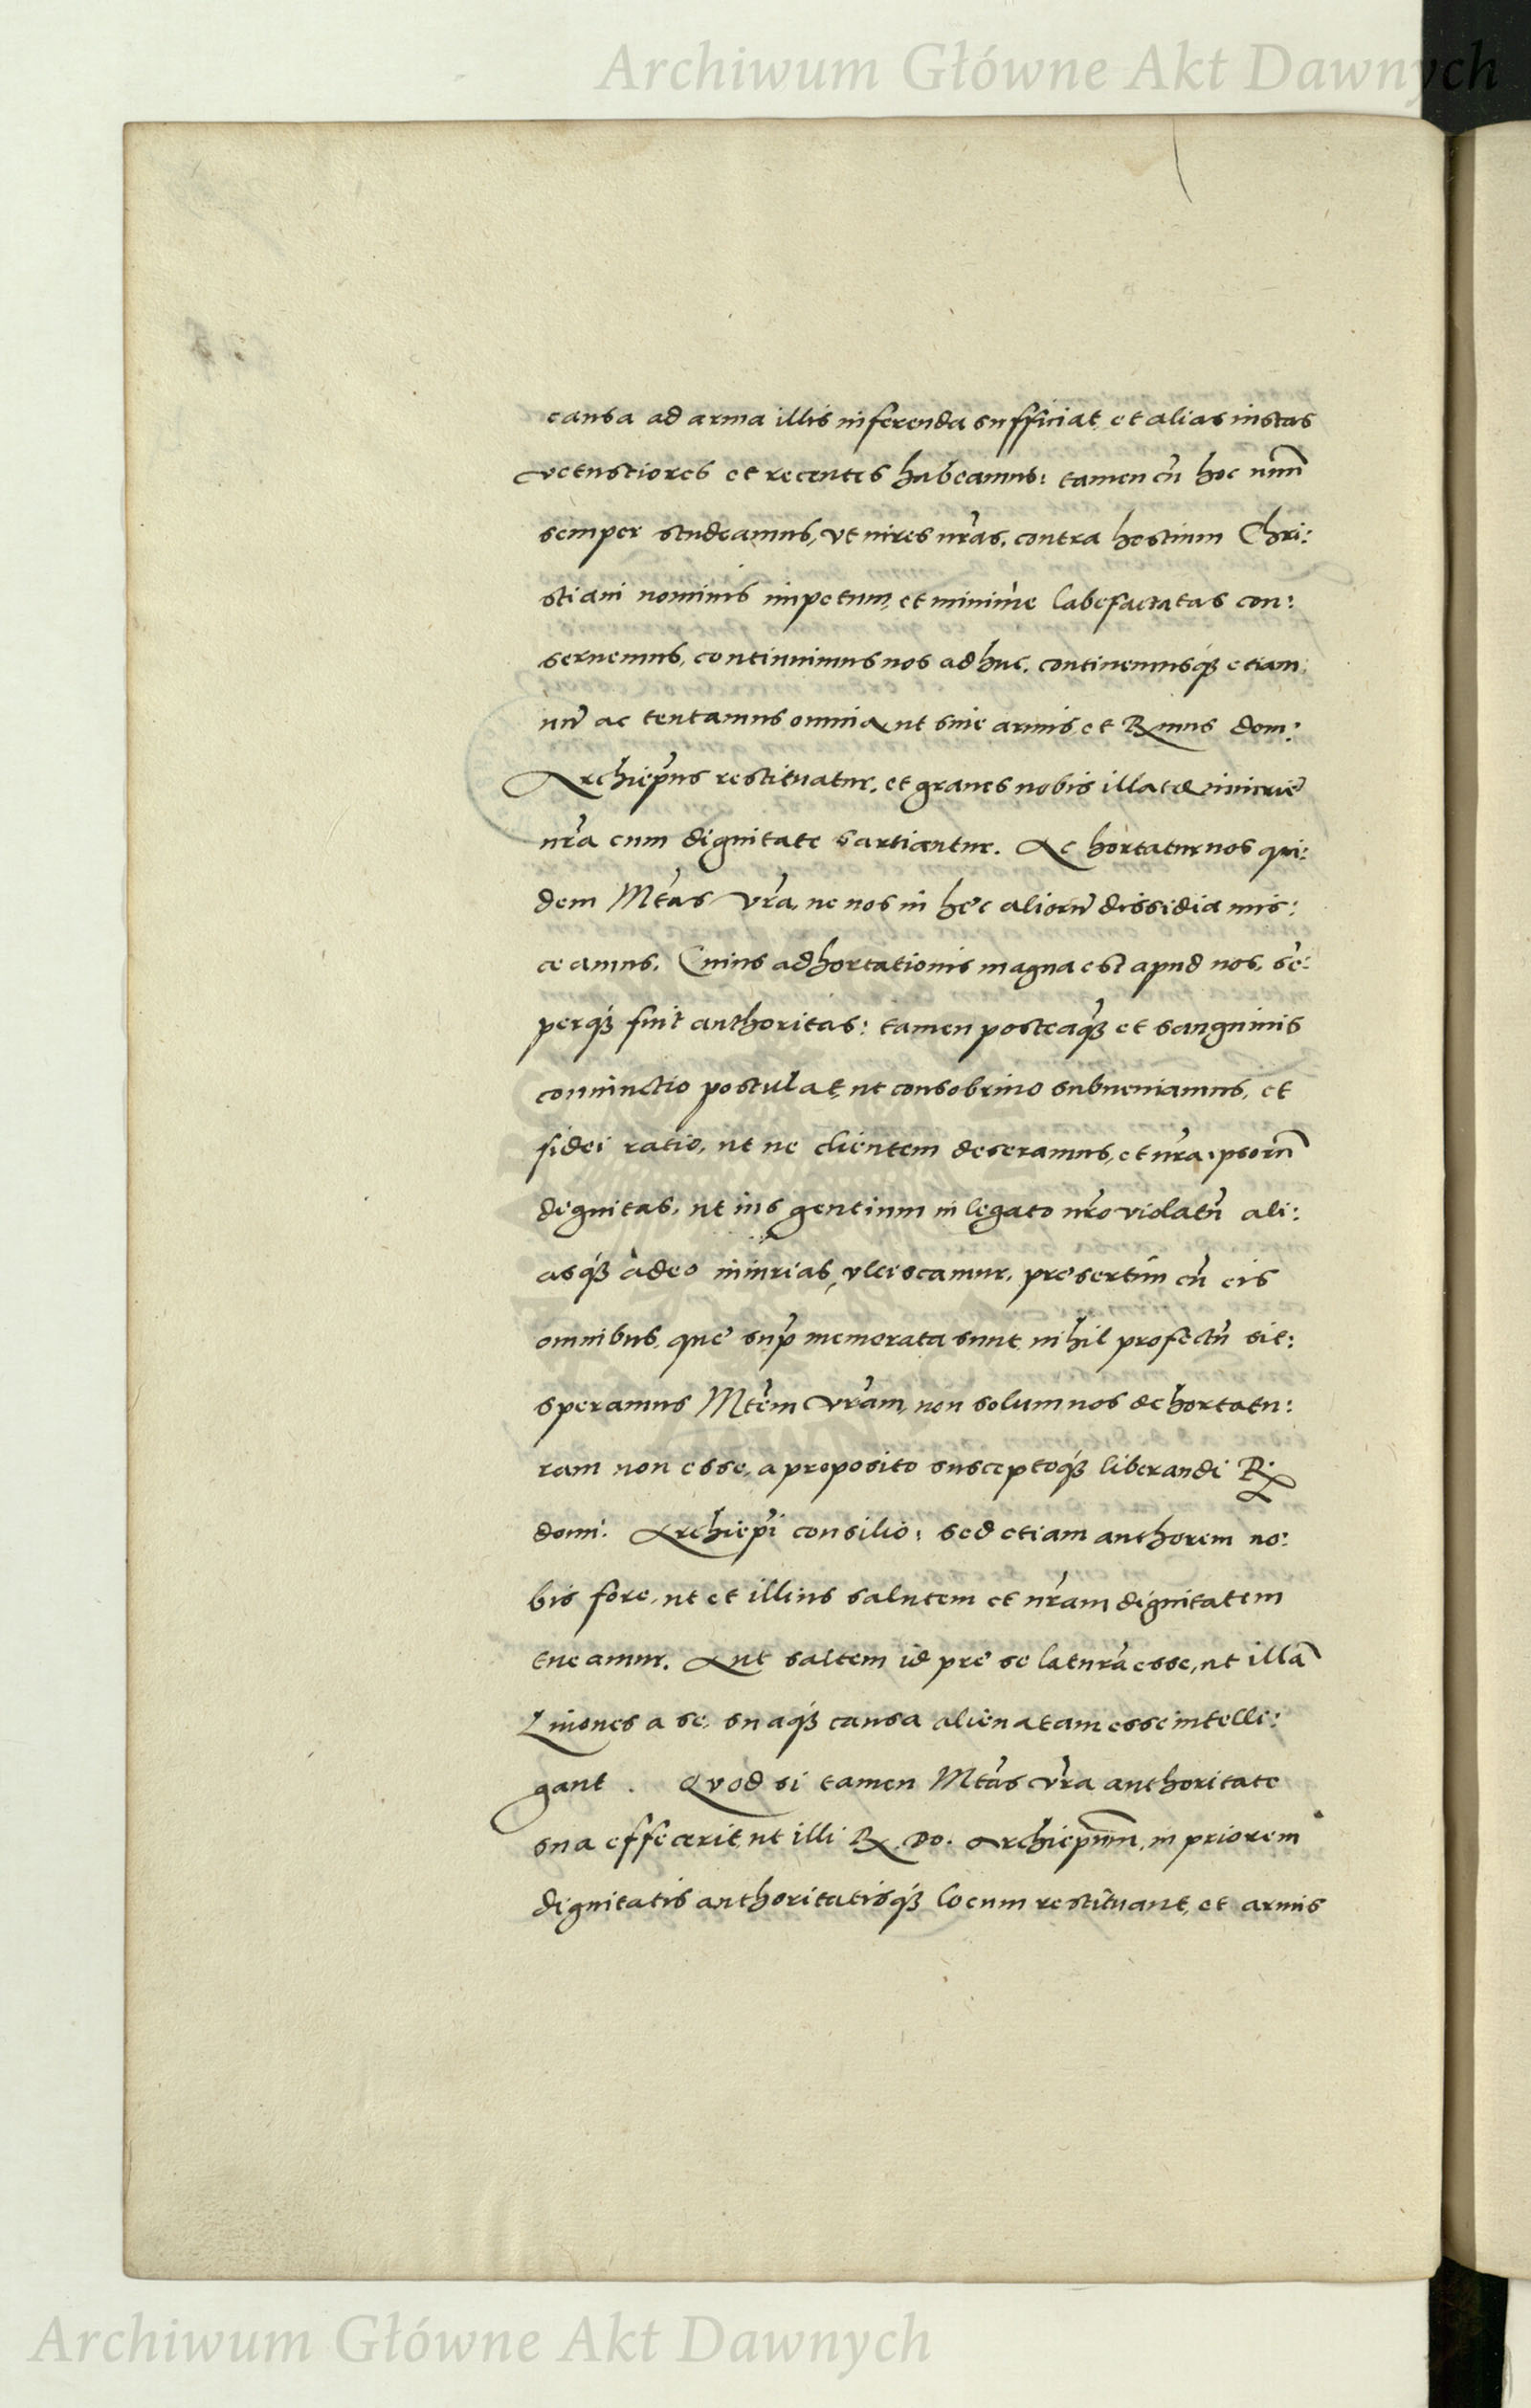 Archiwum Główne Akt Dawnych
causa ad arma illis inferenda sufficiat, et alias iustas
vetustiores et recentes habeamus: tamen cũ hoc unũ
semper studeamus, vt uires nr̃as, contra hostium Chri:
stiani nominis impetum, et minime labefactatas con:
seruemus, continuimus nos adhuc, continemusq́ꝫ etiam
nũ ac tentamus omnia, ut sine armis, et Rmus dom:
Archiep̃us restituatur, et graues nobis illatæ iniuriæ
nr̃a cum dignitate sartiantur. Ac hortatur nos qui:
dem Mtãs Vr̃a, ne nos in hęc aliorũ dissidia mis:
ceamus. Cuius adhortationis magna est apud nos, sẽ:
perq́ꝫ fuit authoritas: tamen posteaq̃ꝫ et sanguinis
coniunctio postulat, ut consobrino subueniamus, et
fidei ratio, ut ne clientem deseramus, et nr̃a ipsorũ
dignitas, ut ius gentium in legato nr̃o violatũ ali:
asq́ꝫ adeo iniurias, vlciscamur, pręsertim cũ eis
omnibus, quę sup̃ memorata sunt, nihil profectũ sit:
speramus Mtẽm Vr̃am, non solum nos dehortatu:
ram non esse, a proposito susceptoq́ꝫ liberandi R.
domi: Archiep̃i consilio: sed etiam authorem no:
bis fore, ut et illius salutem et nr̃am dignitatem
tueamur. Aut saltem id prę se laturã esse, ut illã
Liuones a se, suaq́ꝫ causa alienatam esse intelli:
gant. Quod si tamen Mtãs Vr̃a authoritate
sua effecerit, ut illi R. Do. Archiep̃um, in priorem
dignitatis authoritatisq́ꝫ locum restituant, et armis
Archiwum Główne Akt Dawnych